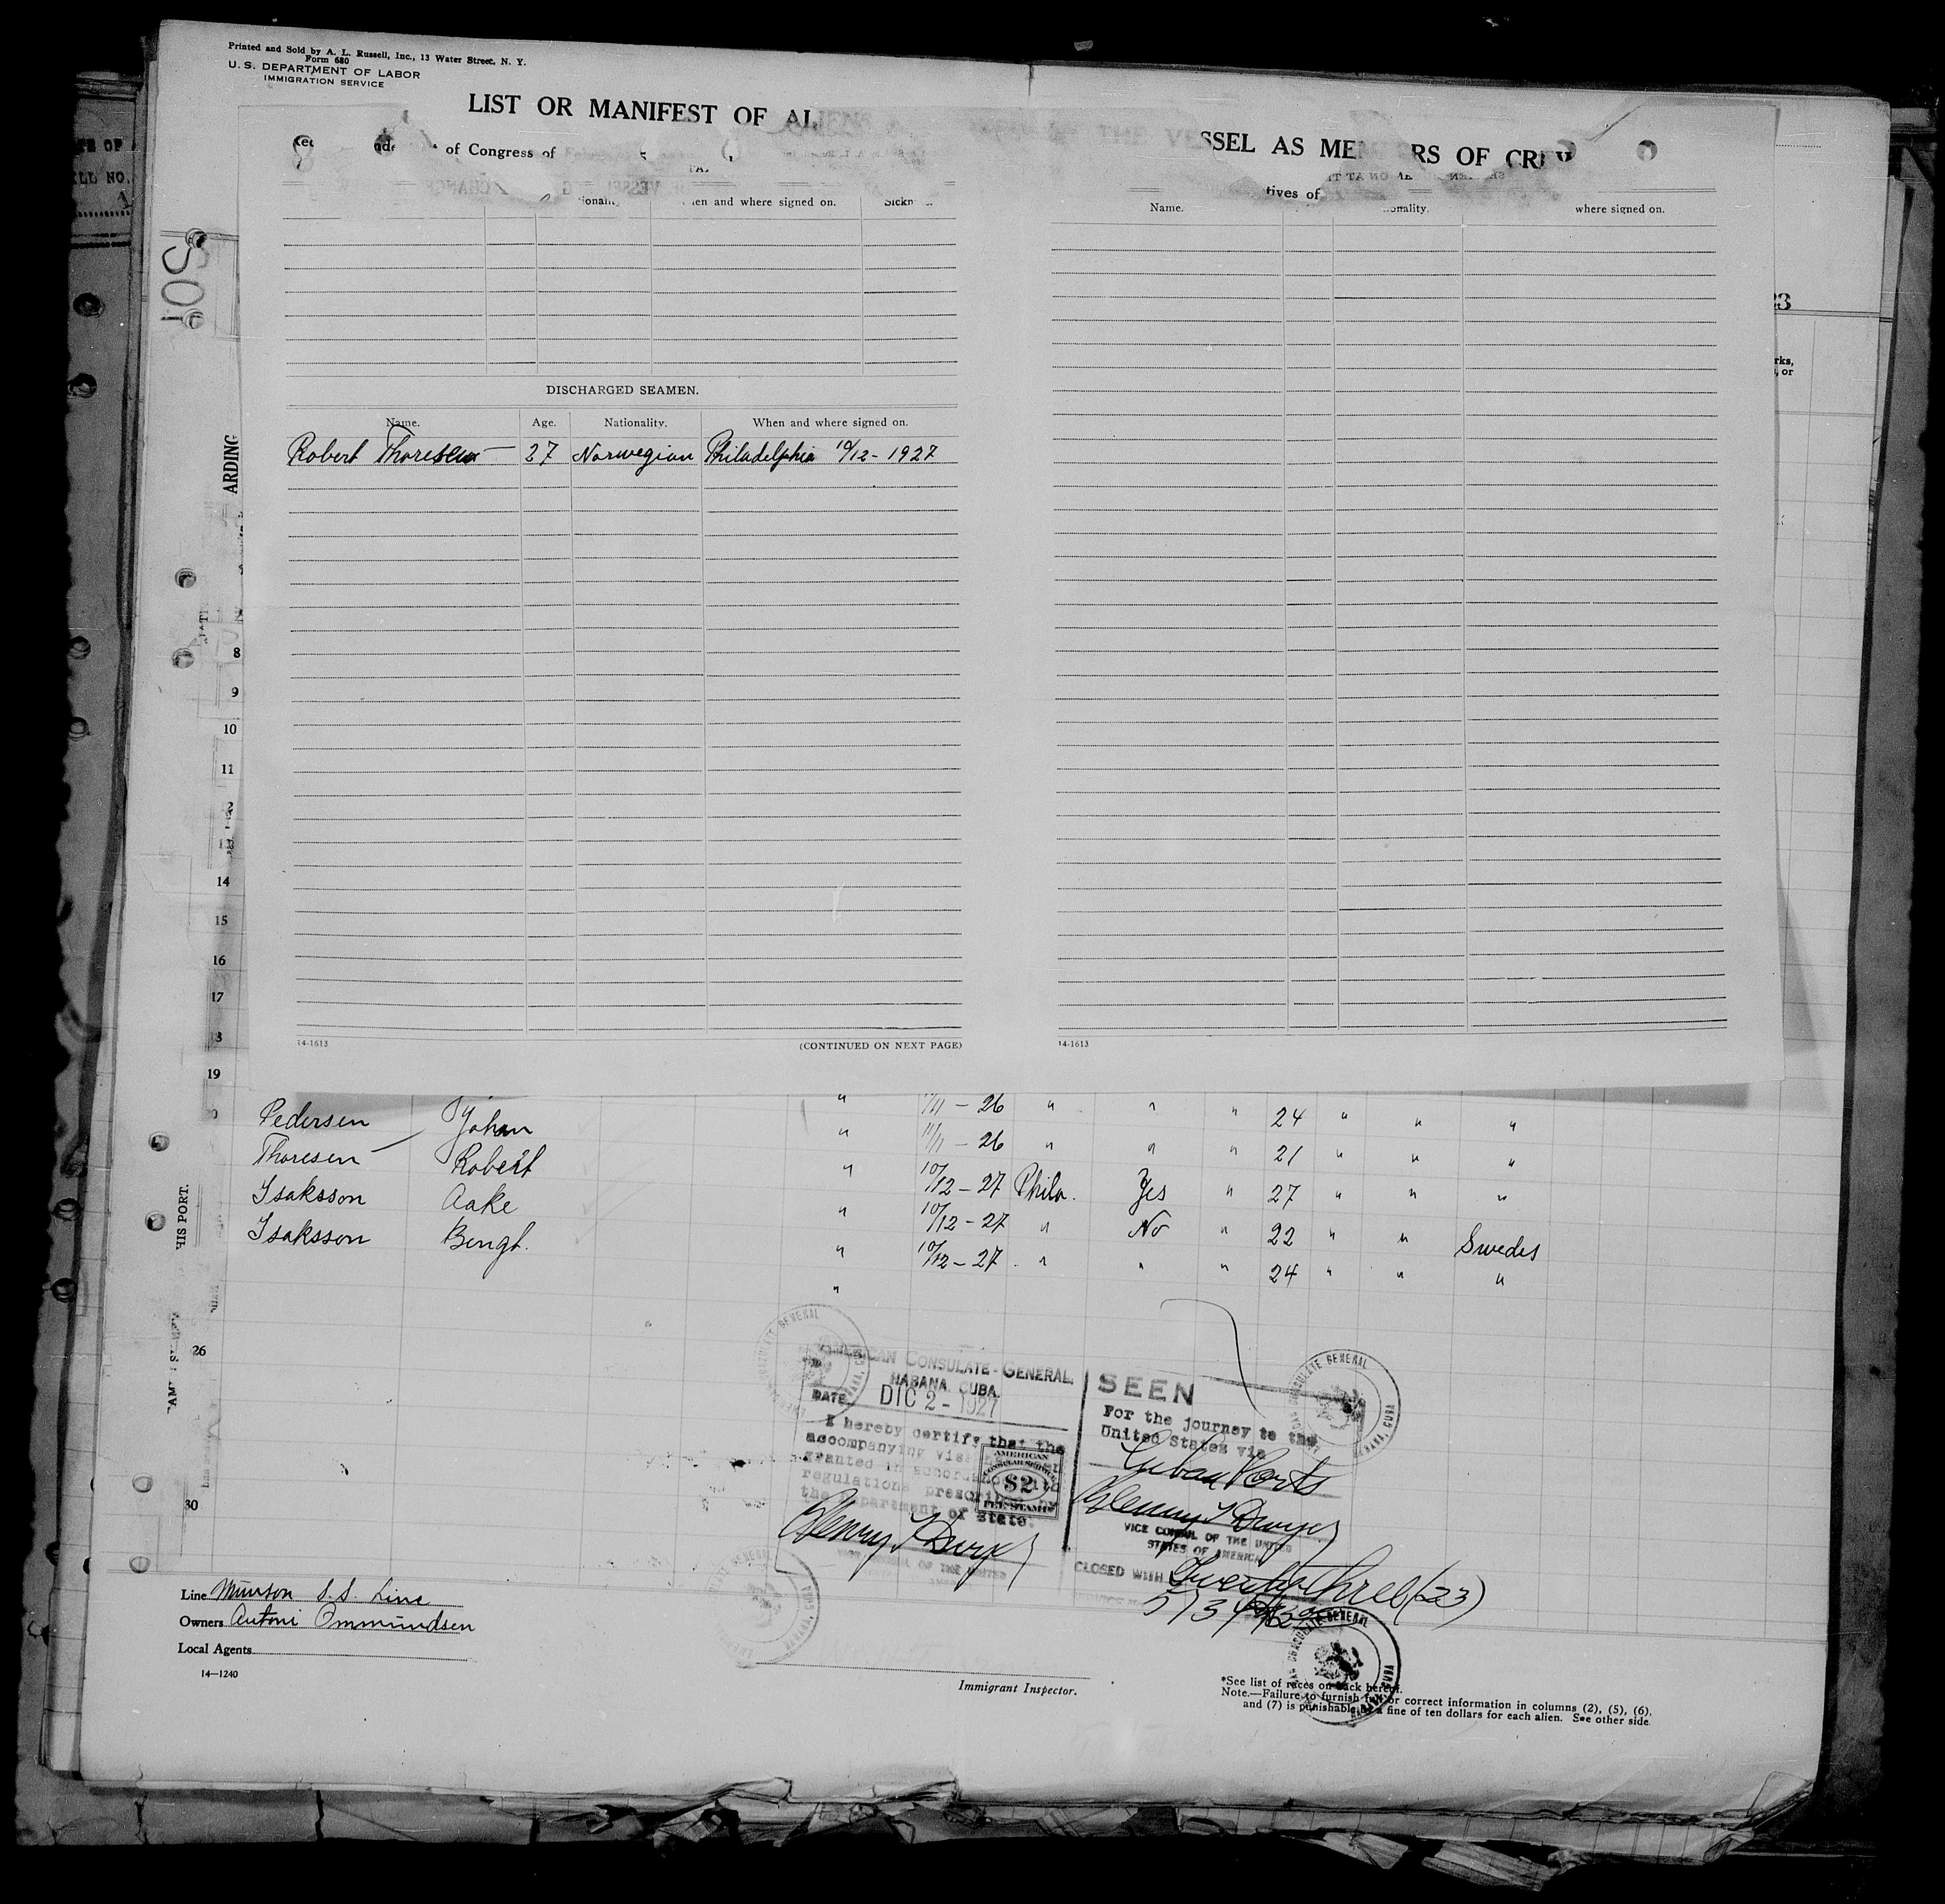 Printed and Sold by A. L. Russell, Inc., 13 Water Street, N. Y.
Form 680
U. S. DEPARTMENT OF LABOR
IMMIGRATION SERVICE
LIST OR MANIFEST OF ALIENS THE VESSEL AS MEMBERS OF CREW
of Congress of
Sickn
Name.
tives of
ionality. en and where signed on.
onality. where signed on.
DISCHARGED SEAMEN.
Name. Age. Nationality. When and where signed on.
Robert Thoresen 27 Norwegian Philadelphia 10/12 - 1927
ARDING
8
9
10
11
14
15
16
17
19
14-1613 (CONTINUED ON NEXT PAGE) 14-1613
" 11/11 - 26 " " " 24 " " "
Pedersen Johan " 11/11 - 26 " " " 21 " " "
Thoresen Robert " 10/12 - 27 Phila. Yes " 27 " " "
Isaksson Aake " 10/12 - 27 " No " 22 " " Swedes
Isaksson Bengt. " 10/12 - 27 " " " 24 " " "
"
HIS PORT.
26
30
AMERICAN CONSULATE-GENERAL.
HABANA, CUBA.
DATE DIC 2 - 1927
I hereby certify that the
accompanying visa
granted in accordance with
regulations prescribed by
the Department of State.
AMERICAN
CONSULAR SERVICE
$2
FEE STAMP
Henry T Dwyer
SEEN
For the journey to the
United States via
Cuban Ports
Henry T Dwyer
VICE CONSUL OF THE UNITED
STATES OF AMERICA
CLOSED WITH Twenty three (23)
Line Munson S.S. Line
Owners Antoni Ommundsen
Local Agents
14—1240
Immigrant Inspector.
*See list of races on back hereof.
Note.—Failure to furnish full or correct information in columns (2), (5), (6),
and (7) is punishable by a fine of ten dollars for each alien. See other side